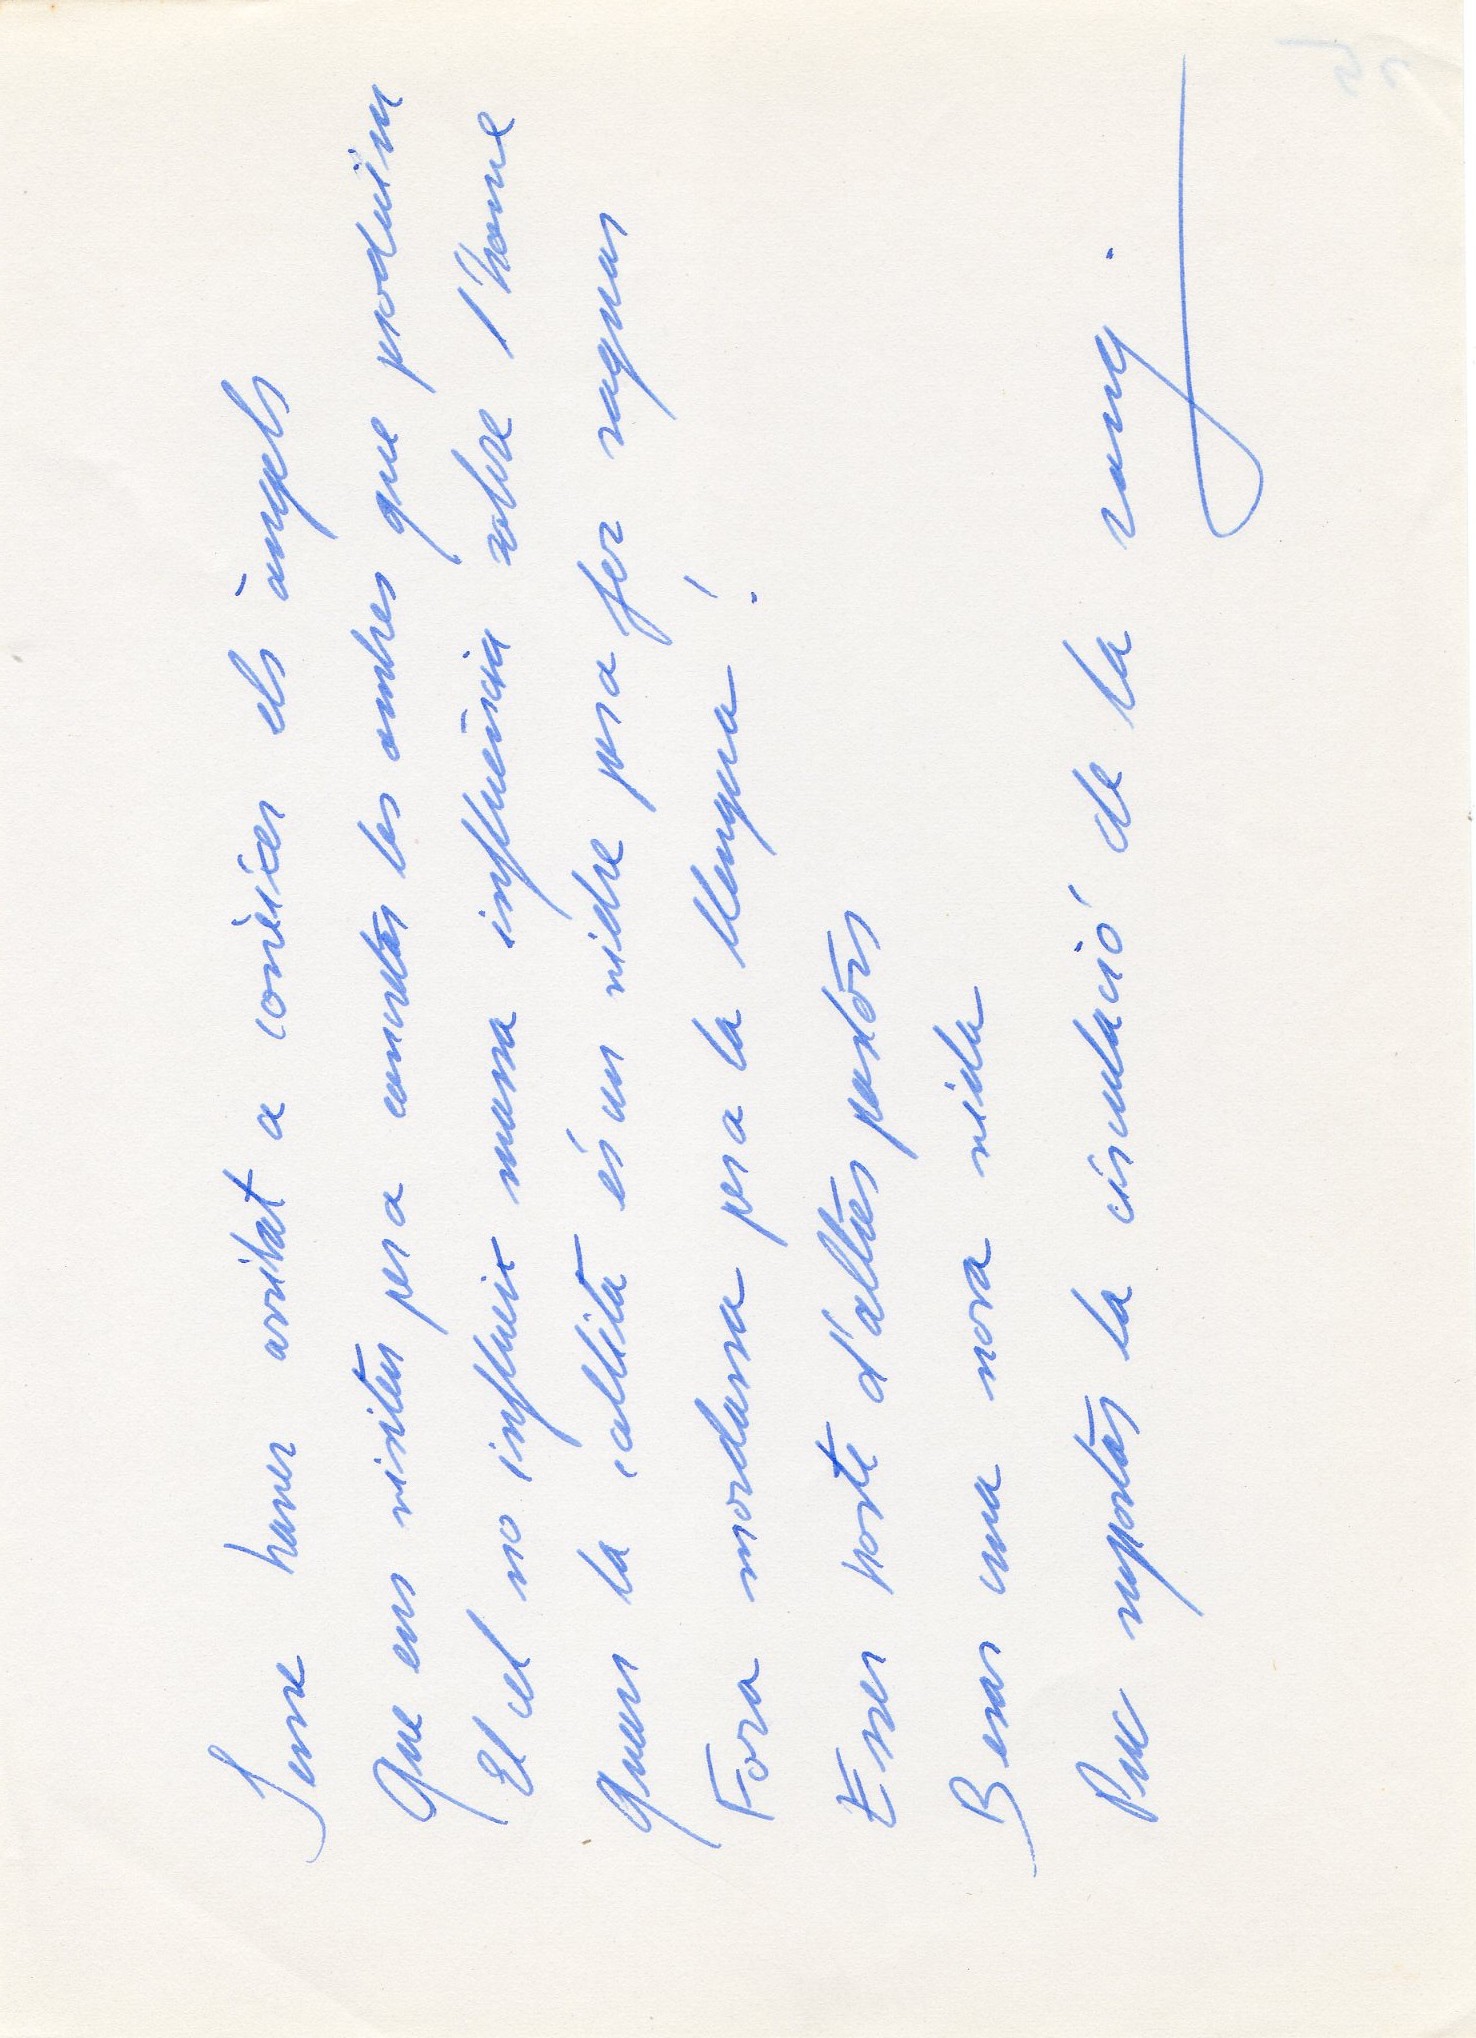 Sense haver arribat a conèixer els àngels
Que ens visiten per a comptar les ombres que produim
El cel no influeix massa influència sobre l'home
Quan la collita és un vidre per a fer vagues
Fora mordassa per a la llengua!
Esser hoste d'altres pastors
Besar una nova vida
Puc suportar la circulació de la sang.